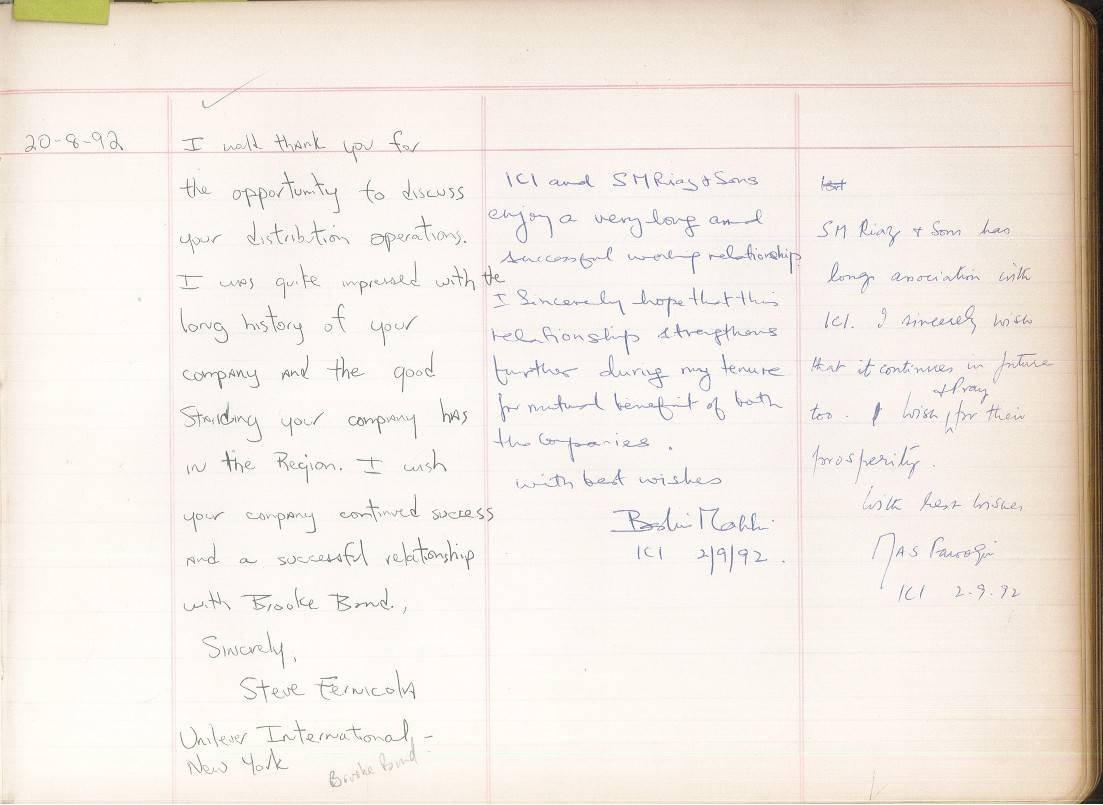 20-8-92
I wold thank you for
the opportunity to discuss
your distribution operations.
I was quite impressed with the
long history of your
company and the good
Standing your company has
in the Region. I wish
your company continued success
and a successful relationship
with Brooke Bond.,
Sincerely,
Steve Fernicola
Unilever International, -
New York
Brooke Bond
ICI and SM Riaz & Sons
enjoy a very long and
successful working relationship.
I Sincerely hope that this
relationship strengthens
further during my tenure
for mutual benefit of both
the Companies.
with best wishes
ICI 2/9/92.
SM Riaz & Sons has
long association with
ICI. I sincerely wish
that it continues in future
too. I wish & Pray for their
prosperity.
With best wishes
ICI 2.9.92